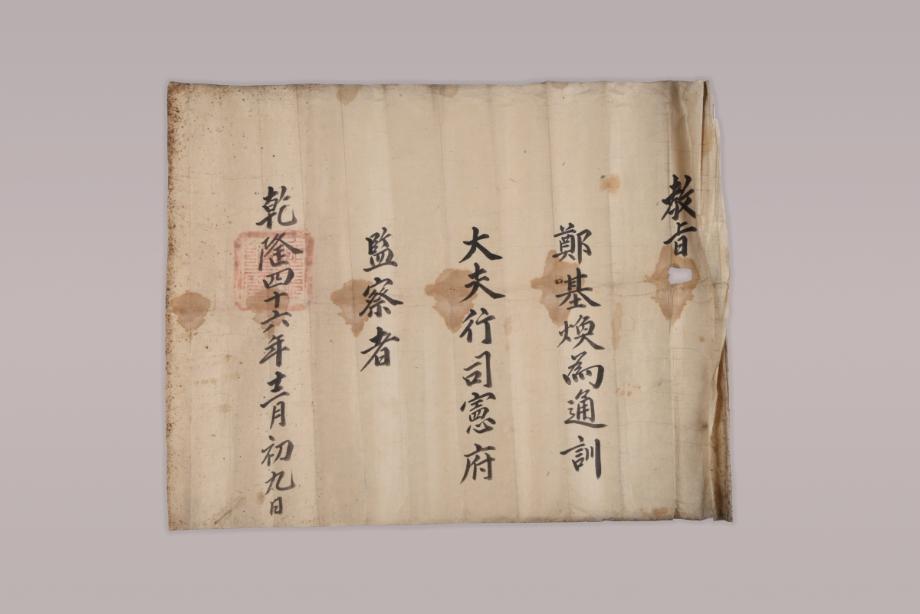 教旨
鄭基煥爲通訓
大夫行司憲府
監察者
乾隆四十六年十二月初九日